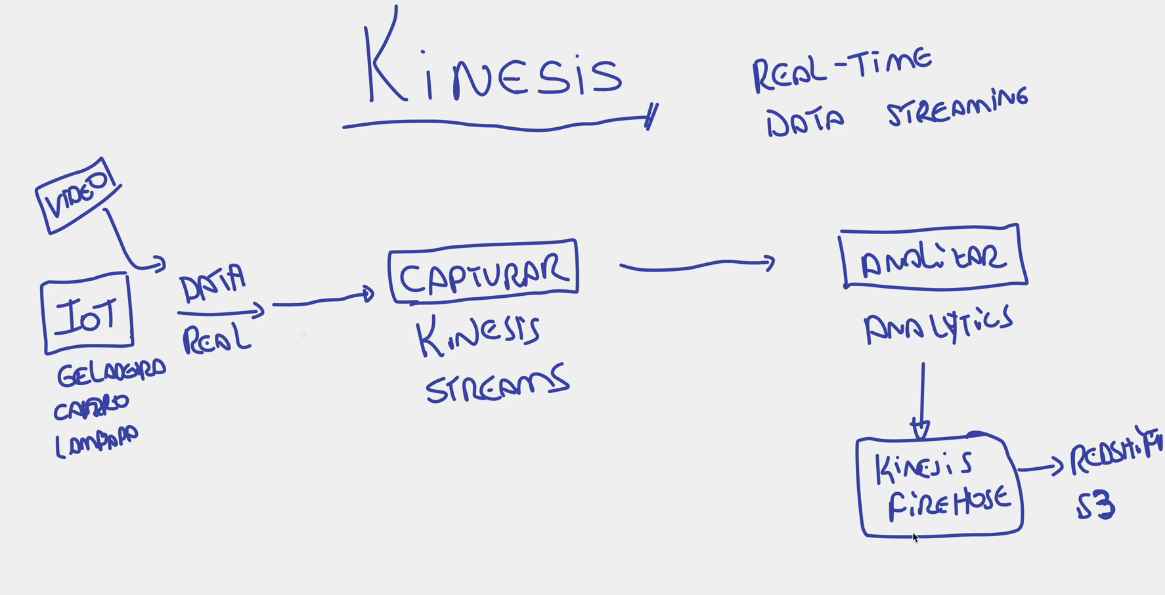 KiNESiS
REAL-TiME
DATA STREAMiNG
VIDEO
IoT
GELADEIRA
CARRO
LAMPADA
DATA
REAL
CAPTURAR
KiNESIS
STREAMS
ANALiZAR
ANALYTiCS
KiNESiS
FiREHOSE
REDSHiFT
S3